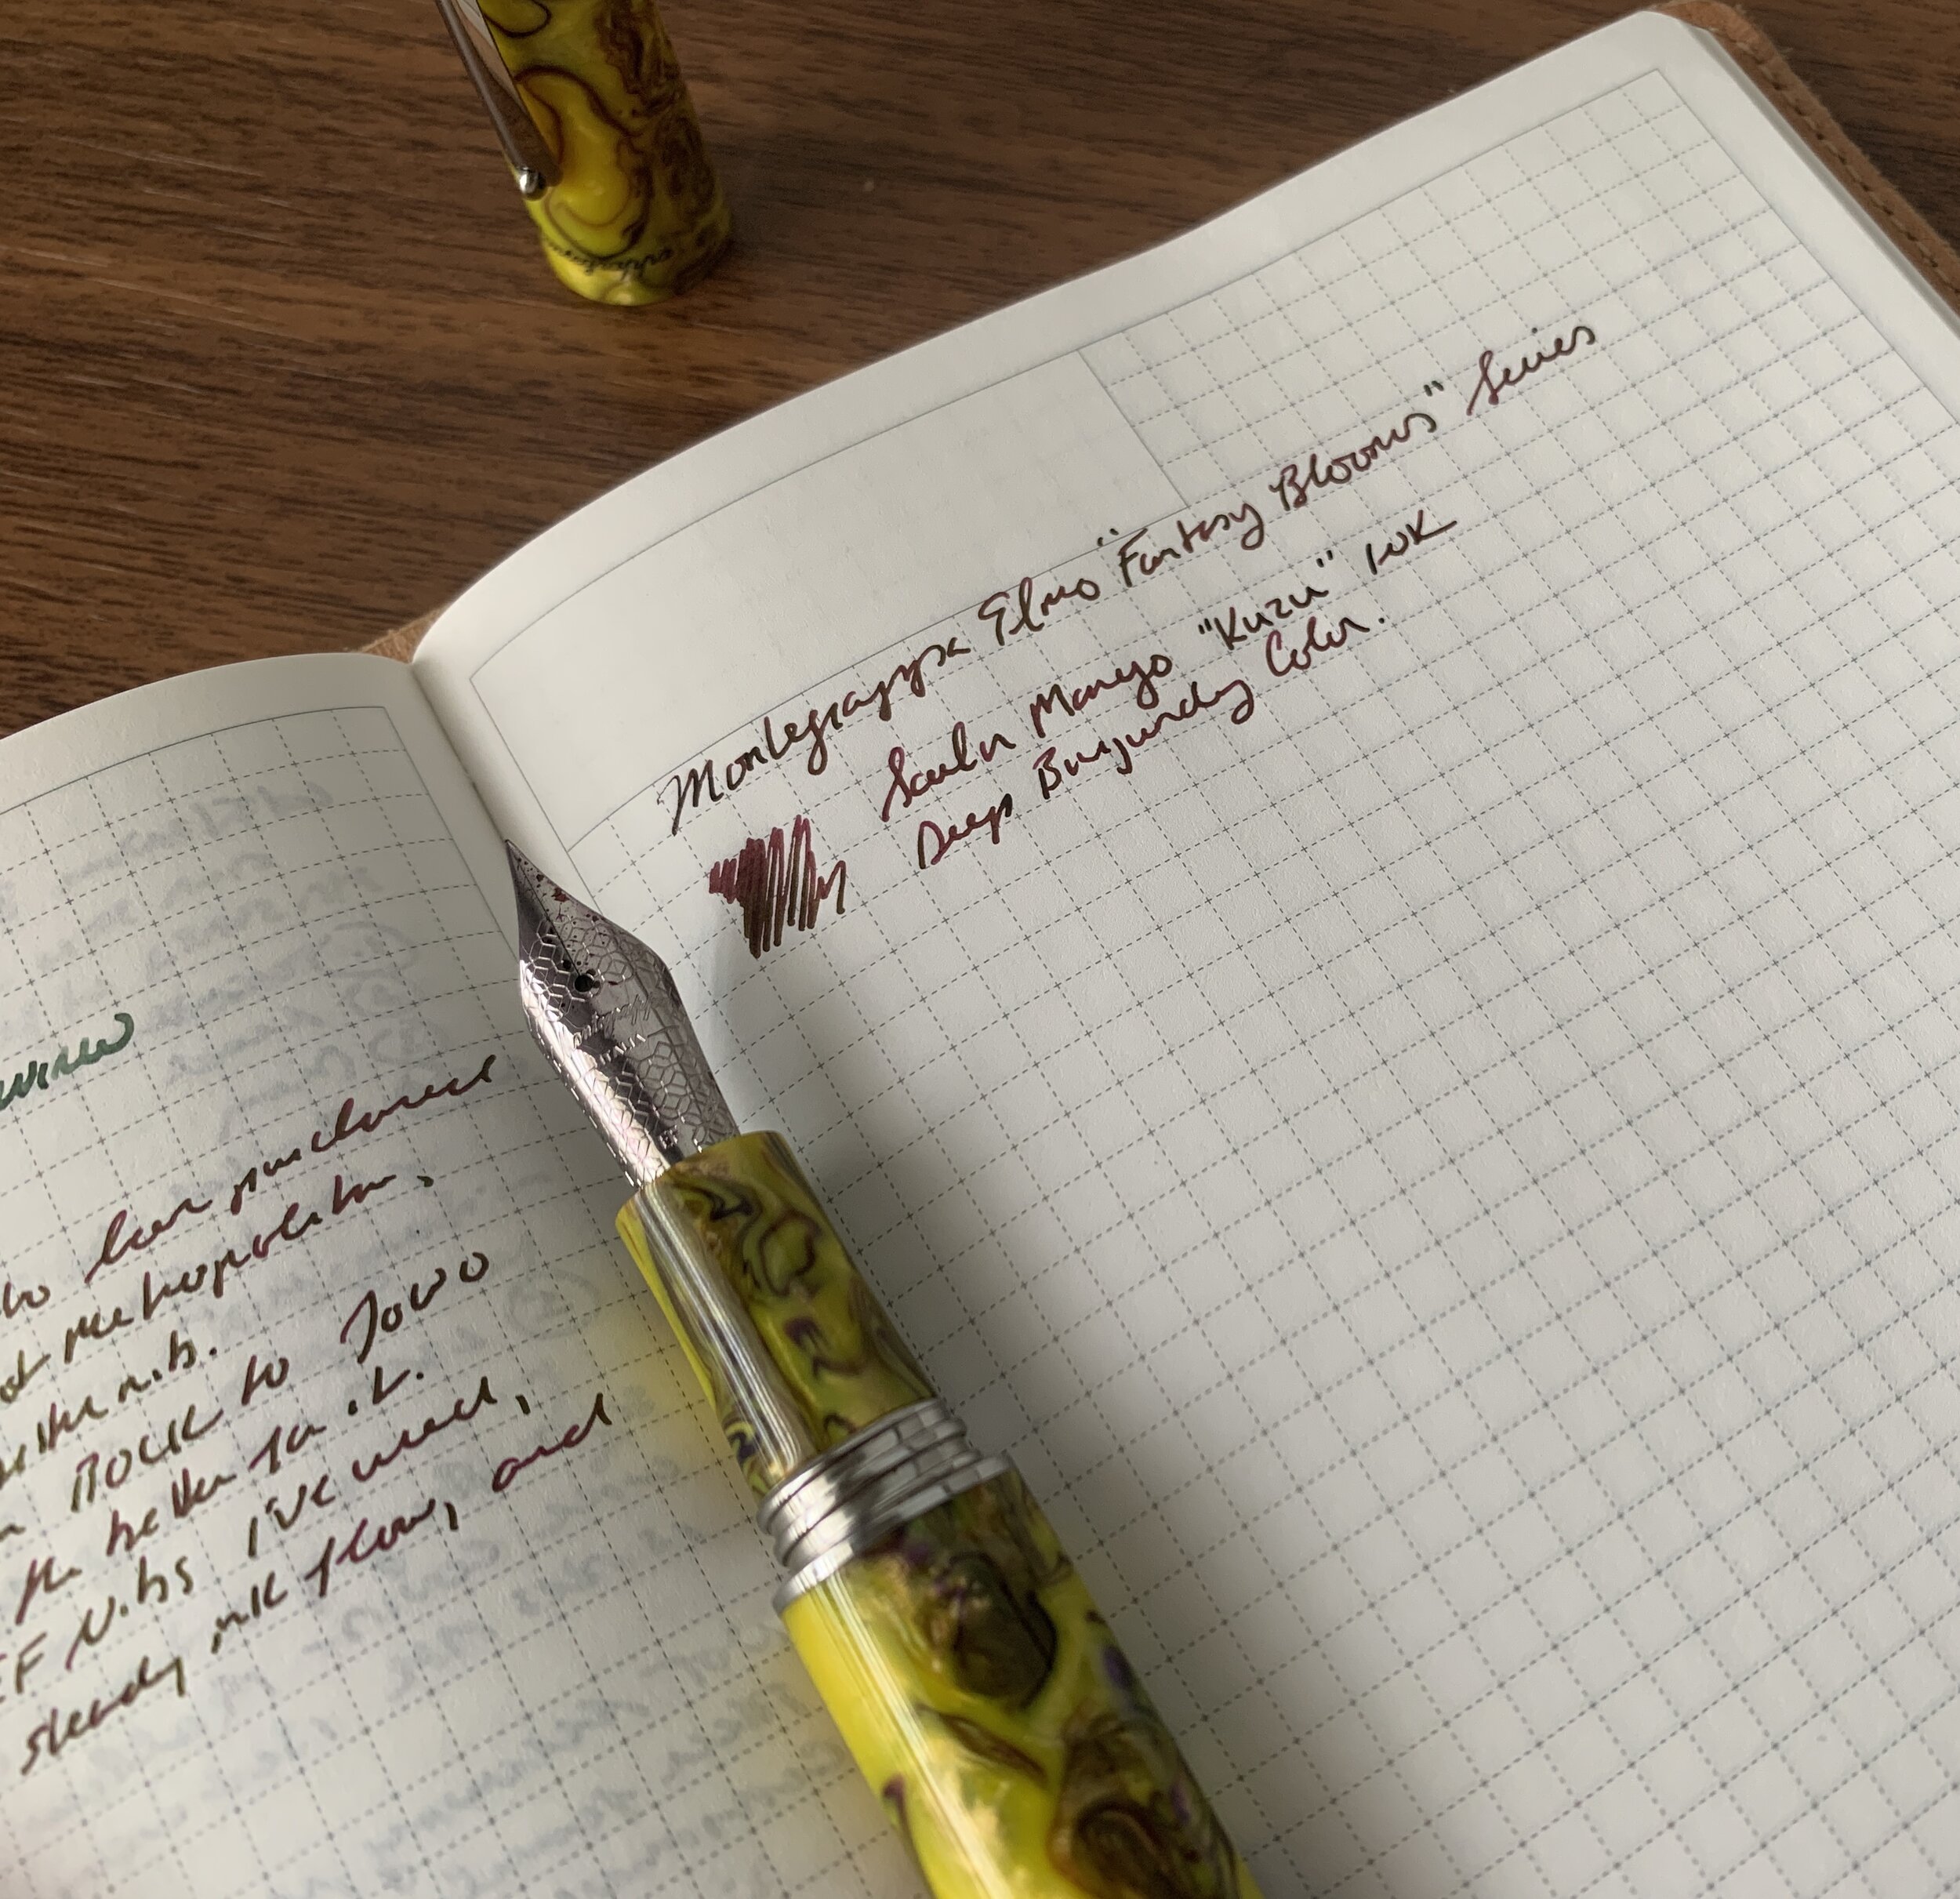 Montegrappa Elmo "Fantasy Blooms" Series
Sailor Manyo "Kuzu" ink
Deep Burgundy Color.
purchased
metropolitan.
the nib.
to Jowo
the better for it.
EF Nibs I've used,
steady ink flow, and